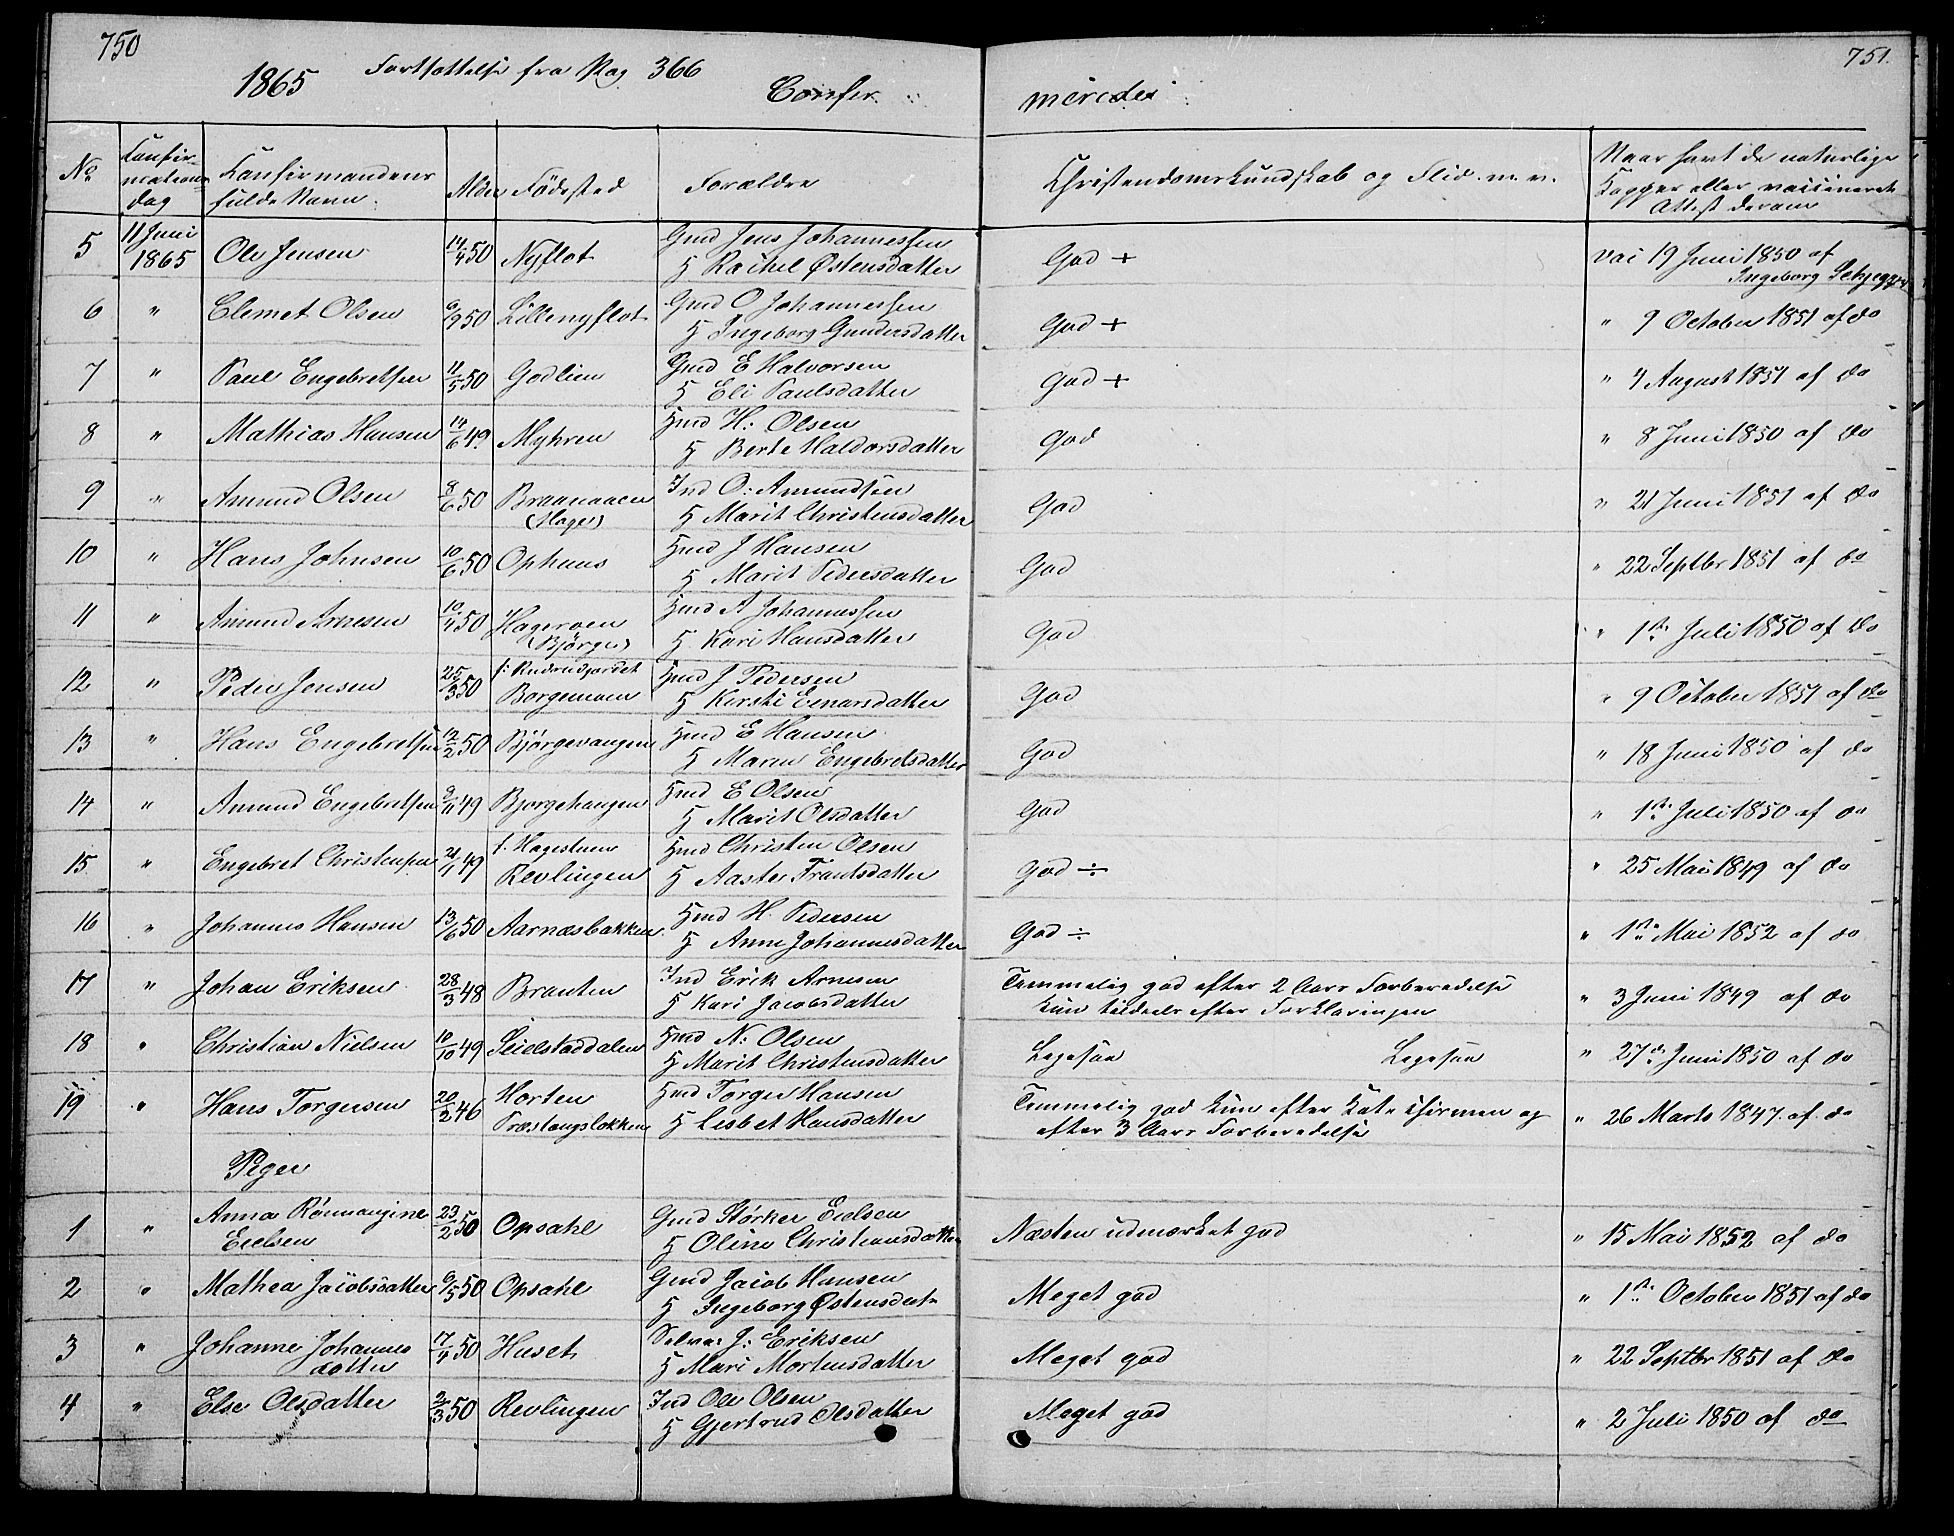 750
1865 Fortsættelse fra Pag 366
Confir
merede
751.
No
Konfir-
mations
dag
Konfirmandens
fulde Navn.
Alder
Födested
Forældre
Christendomskundskab og Flid. m. v.
Naar havt de naturlige
Kopper eller vaccineret
Attest derom
5 11 Juni 1865 Ole Jensen 14/4 50 Nyflot Gmd Jens Johannessen
H Rachel Østensdatter God + vac 19 Juni 1850 af
Ingeborg
6 " Clemet Olsen 6/9 50 Lillenyflot Gmd O Johannessen
H Ingeborg Gundersdatter God + " 9 October 1851 af do
7 " Paul Engebretsen 11/5 50 Godlien Gmd E Halvorsen
H Eli Paulsdatter God + " 4 August 1851 af do
8 " Mathias Hansen 14/6 49 Myhren Hmd H: Olsen
H Berte Haldorsdatter God " 8 Juni 1850 af do
9 " Amund Olsen 8/6 50 Braanaaen
(Hage) Ind O: Amundsen
H Marit Christensdatter God " 21 Juni 1851 af do
10 " Hans Johnsen 10/6 50 Ophuus Hmd J Hansen
H Marit Pedersdatter God " 22 Septbr 1851 af do
11 " Amund Arnesen 10/4 50 Hageroen
(Bjørge) Hmd A Johannessen
H Kari Hansdatter God " 1ste Juli 1850 af do
12 " Peder Jensen 25/3 50 f: Rudrudjordet
Borgemoen Hmd J Pedersen
H Kersti Evnarsdatter God " 9 October 1851 af do
13 " Hans Engebretsen 12/2 50 Bjørgevangen Hmd E Hansen
H Maren Engebretsdatter God " 18 Juni 1850 af do
14 " Amund Engebretsen 9/11 49 Bjorgehaugen Hmd E Olsen
H Marit Olsdatter God " 1ste Juli 1850 af do
15 " Engebret Christensen 21/1 49 f: Hagestuen
Revlingen Hmd Christen Olsen
H Aaste Frantsdatter God ÷ " 25 Mai 1849 af do
16 " Johannes Hansen 13/6 50 Aarnæsbakken Hmd H. Pedersen
H Anne Johannesdatter God ÷ " 1ste Mai 1852 af do
17 " Johan Eriksen 28/3 48 Braaten Ind Erik Arnesen
H Kari Jacobsdatter Temmelig god efter 2 Aars Forberedelse
kun tildeels efter Forklaringen " 3 Juni 1849 af do
18 " Christian Nielsen 10/10 49 Seielstaddalen Hmd N: Olsen
H Marit Christensdatter Ligesaa Ligesaa " 27de Juni 1850 af do
19 " Hans Torgersen 20/2 46 Horten
Præstengsløkken Hmd Torger Hansen
H Lisbet Hansdatter Temmelig god kun efter og
efter 3 Aars Forberedelse " 26 Marts 1847 af do
Piger
1 " Anna Rönnaugine
Eielsen 23/2 50 Opsahl Gmd Størker Eielsen
H Oline Christiansdatter Næsten udmærket god " 15 Mai 1852 af do
2 " Mathea Jacobsdatter 6/5 50 Opsahl Gmd Jacob Hansen
H Ingeborg Østensdat Meget god " 1ste October 1851 af do
3 " Johanne Johannes
datter 17/4 50 Huset Selve: J: Eriksen
H Mari Mortensdatter Meget god " 22 Septbr 1851 af do
4 " Else Olsdatter 2/3 50 Revlingen Ind Ole Olsen
H Gjertrud Olsdatter Meget god " 2 Juli 1850 af do